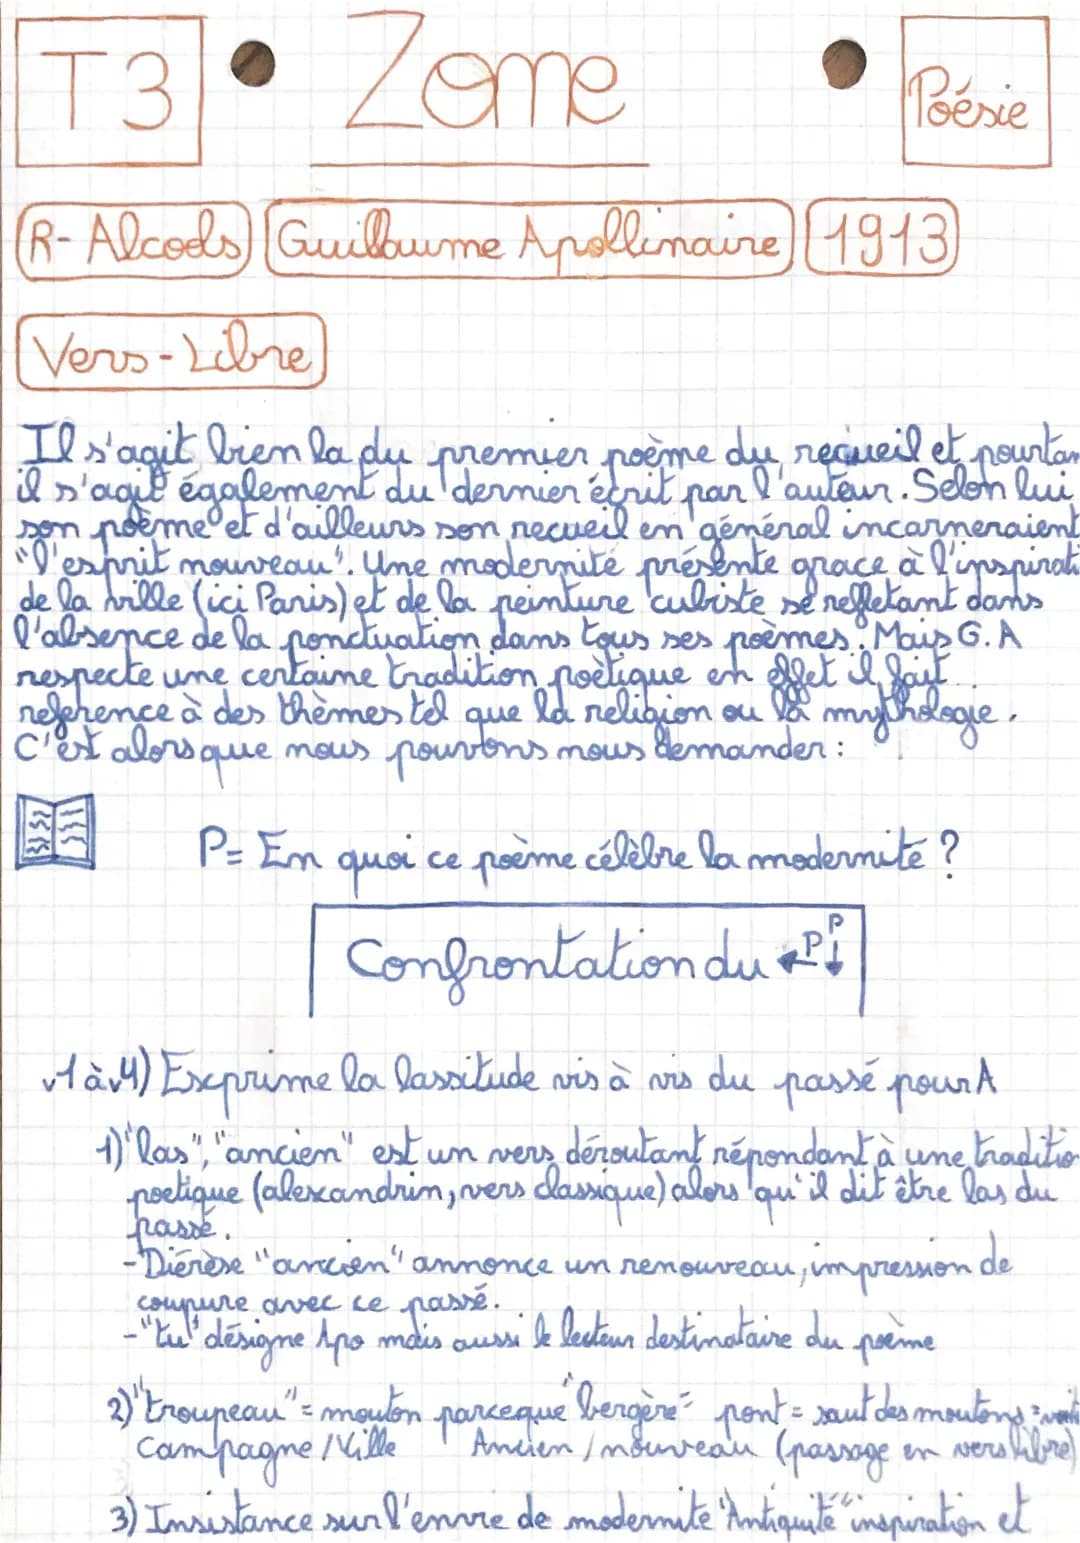 T3
Zone
Poésie
R- Alcools
Guillaume Apollinaire
1913
Vers-Libre
Il s'agit bien la du premier poème du recueil et pourtan
il s'agit également du dernier écrit par l'auteur. Selon lui
son poème et d'ailleurs son recueil en général incarneraient
"l'esprit nouveau". Une modernité présente grace à l'inspirati
de la ville (ici Paris) et de la peinture cubiste se reffletant dans
l'absence de la ponctuation dans tous ses poèmes. Mais G.A
respecte une certaine tradition poètique en effet il fait
reference à des thèmes tel que la religion ou la mythologie.
C'est alors que nous pouvons nous demander :
P= En quoi ce poème célèbre la modernité ?
Confrontation du ←P P↓
v1 à v4) Exprime la lassitude vis à vis du passé pour A
1) "las", "ancien" est un vers déroutant répondant à une traditio
poetique (alexandrin, vers classique) alors qu'il dit être las du
passé.
- Diérèse "ancien" annonce un renouveau, impression de
coupure avec ce passé.
- "tu" désigne Apo mais aussi le lecteur destinataire du poème
2) "troupeau" = mouton parceque "bergère" pont = saut des moutons =
Campagne / Ville Ancien / nouveau (passage en vers libre)
3) Insistance sur l'envie de modernité "Antiquité" inspiration et